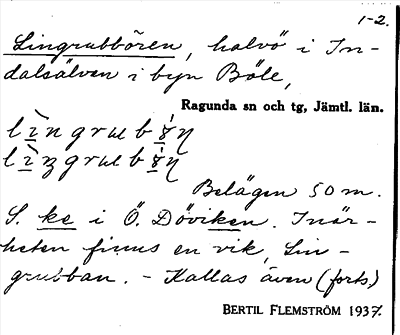 1-2.
Lingrubbören, halvö i In-
dalsälven i byn Böle,
Ragunda sn och tg, Jämtl. län.
Belägen 50 m.
S. ke i Ö. Döviken. I när-
heten finns en vik, Lin-
grubban. - Kallas även (forts)
BERTIL FLEMSTRÖM 1937.